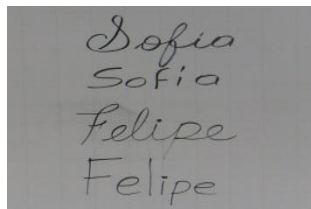 Sofia
Sofia
Felipe
Felipe